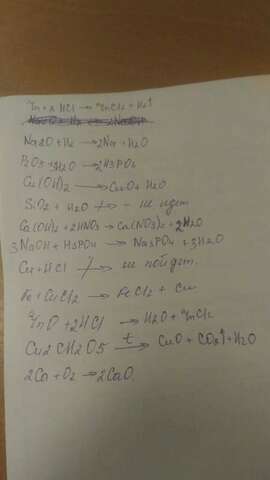 Zn + 2HCl → ZnCl2 + H2↑
Na2O + H2 → 2Na + H2O
P2O5 + 3H2O → 2H3PO4
Cu(OH)2 → CuO + H2O
SiO2 + H2O ↛ - не идёт
Ca(OH)2 + 2HNO3 → Ca(NO3)2 + 2H2O
3NaOH + H3PO4 → Na3PO4 + 3H2O
Cu + HCl ↛ не пойдёт.
Fe + CuCl2 → FeCl2 + Cu
ZnO + 2HCl → H2O + ZnCl2
Cu2CH2O5 t→ CuO + CO2↑ + H2O
2Ca + O2 → 2CaO